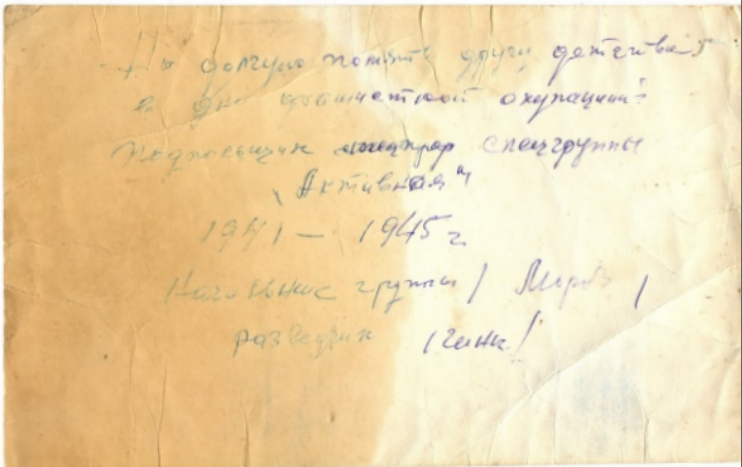 На долгую память другу детства
в дни фашистской окупации
Подпольщик спецгруппы
„Активная"
1941 – 1945 г
Начальник группы / Мороз /
разведчик /